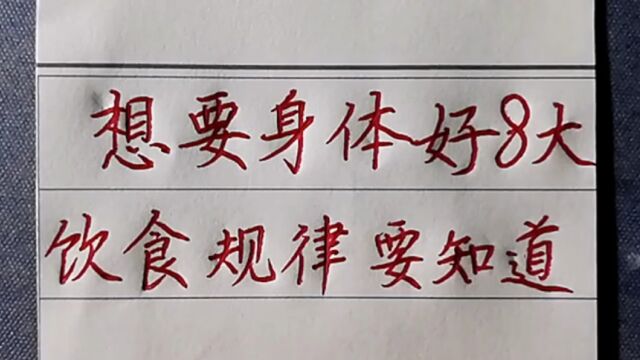 想要身体好8大
饮食规律要知道